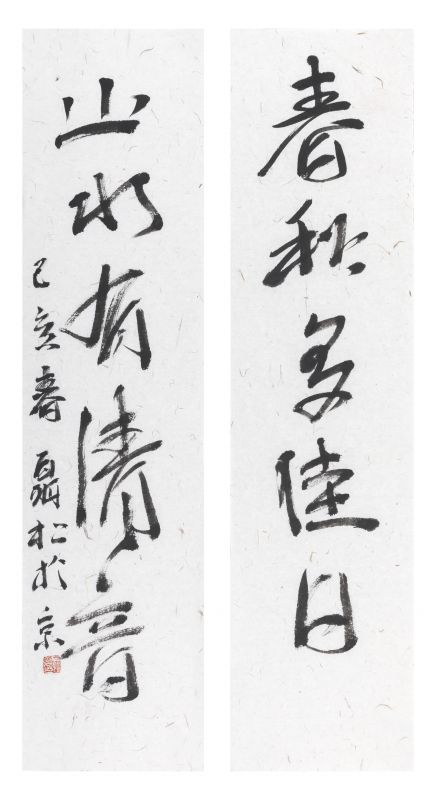 春秋多佳日
山水有清音
己亥春聶松於京